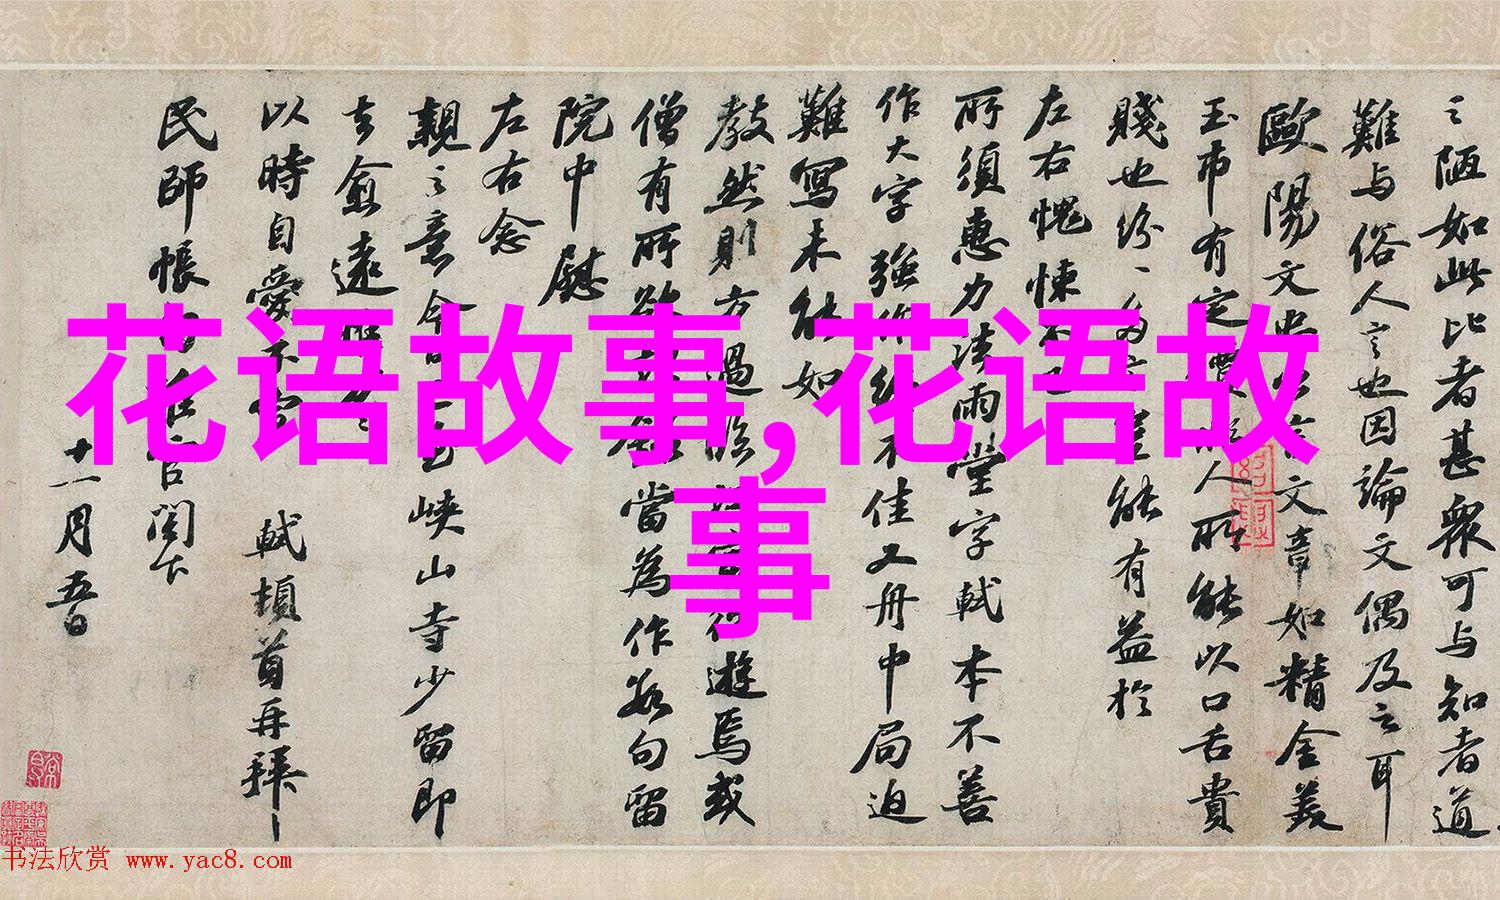 之陋如此比者甚衆可与知者道
難与俗人言也因論文偶及之耳
歐陽文忠公言文章如精金美
玉市有定價非人所能以口舌貴
賤也紛〻多言豈能有益於
左右愧悚不已
所須惠力法雨堂字軾本不善
作大字強作終不佳又舟中局迫
難寫未能如
教然則方過臨江當往遊焉或
僧有所欲記錄當為作數句留
院中慰
左右念
親之意今日已至峽山寺少留即
去愈遠惟万〻
以時自愛不宣 軾頓首再拜
民師帳句推官閣下
十一月五日
花语故事,花语故
事
书法欣赏 www.yac8.com